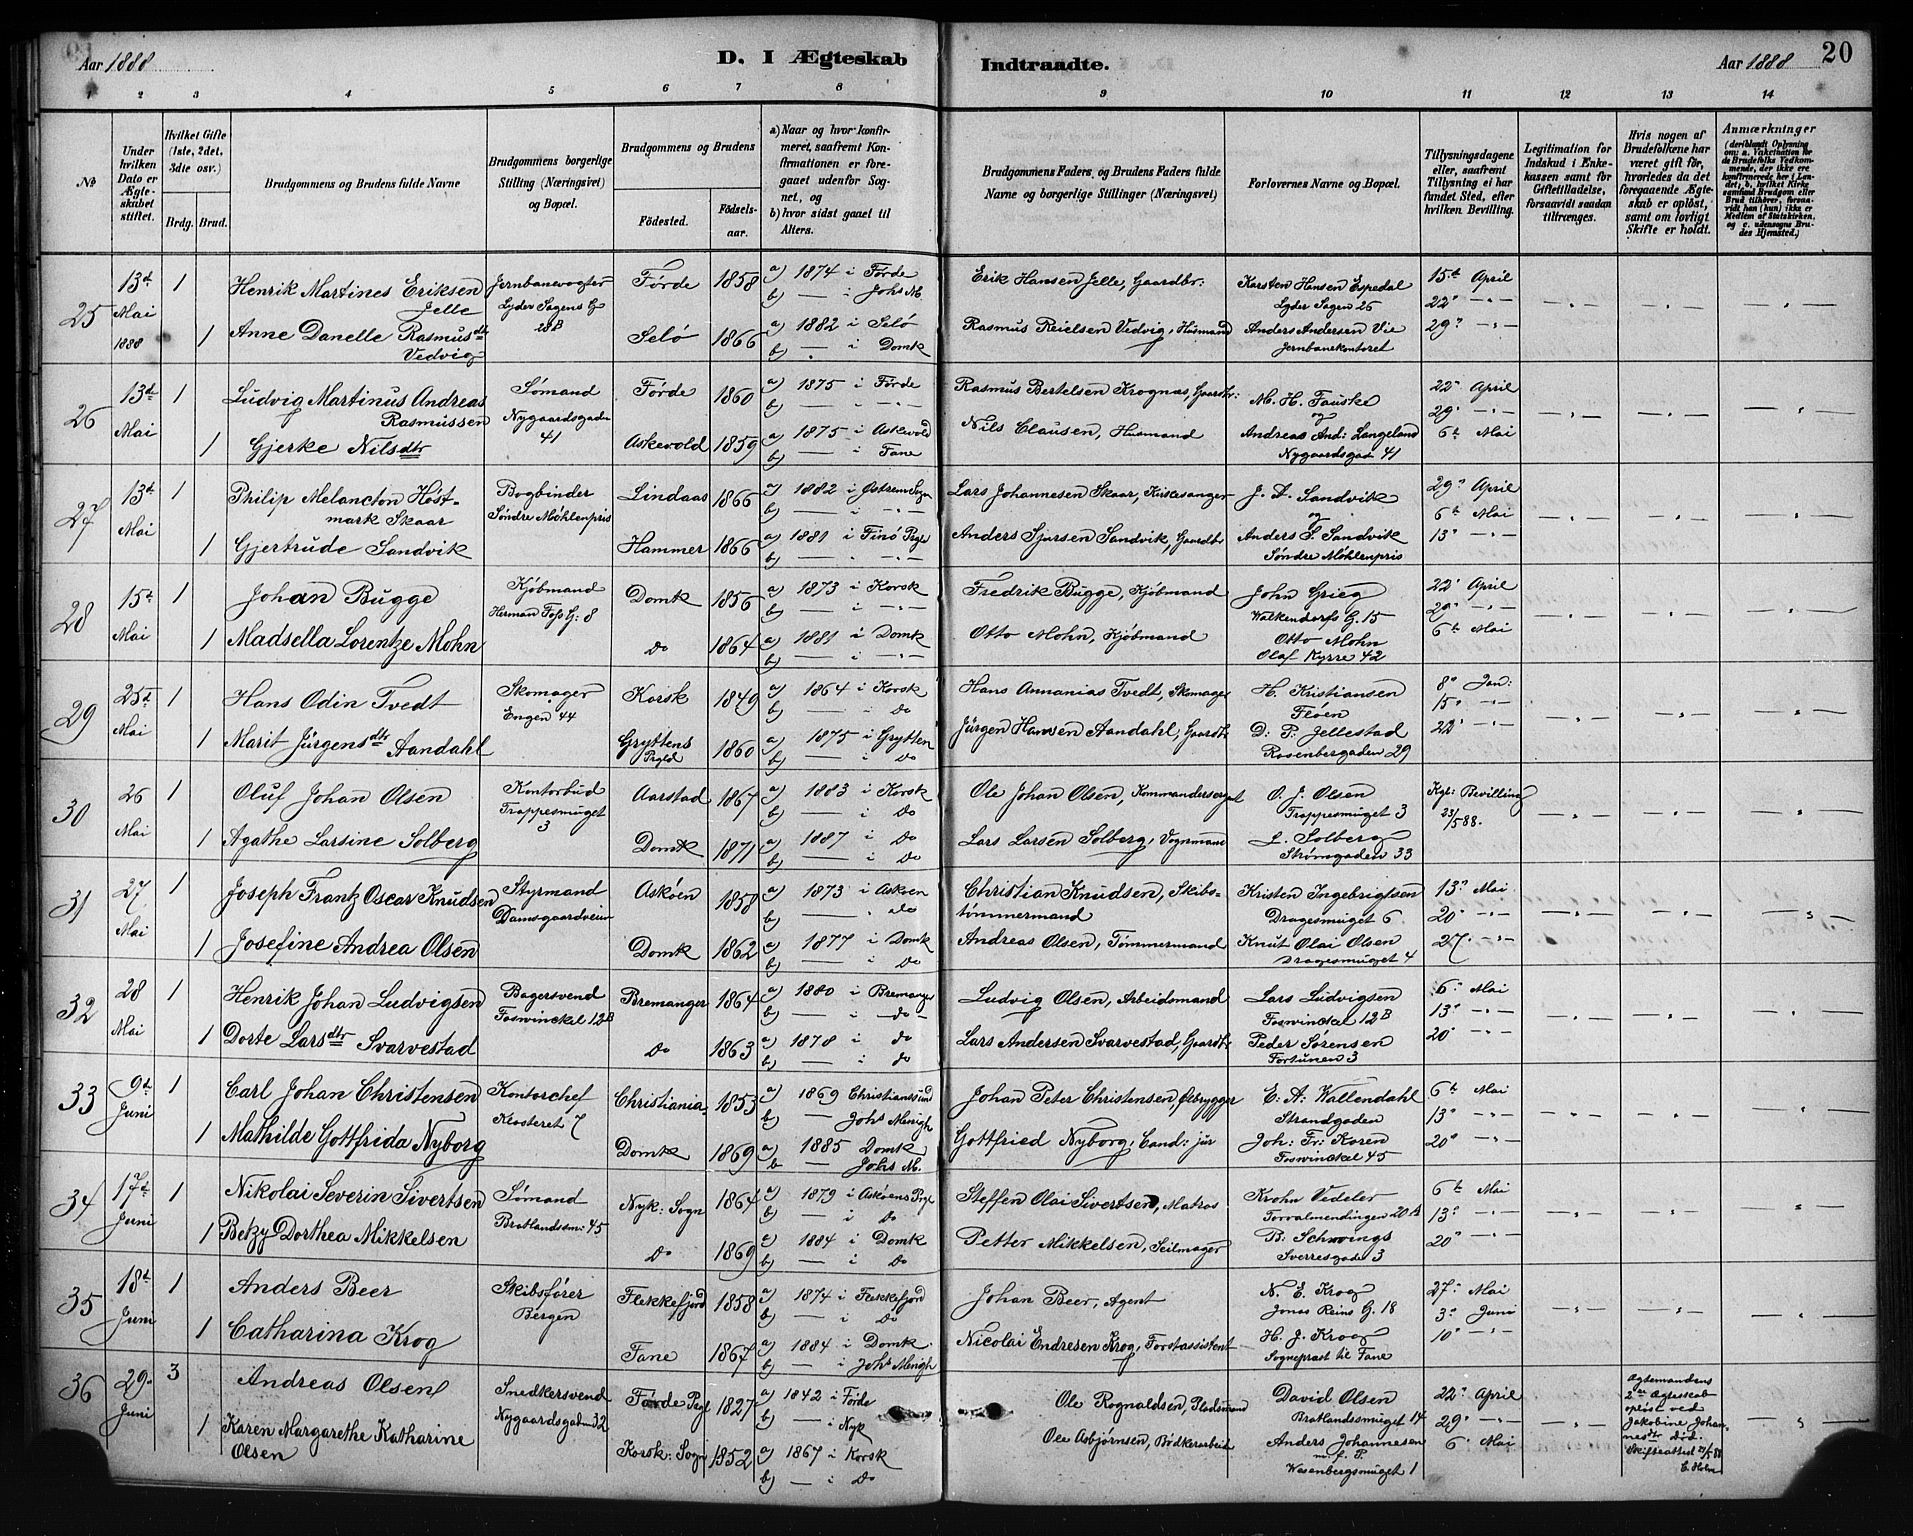 Aar 1888
D. I Ægteskab Indtraadte.
Aar 1888
20
1 2 3 4 5 6 7 8 9 10 11 12 13 14
№
Under hvilken Dato er Ægteskabet stiftet.
Hvilket Gifte (1ste, 2det, 3dte osv.)
Brdg. Brud.
Brudgommens og Brudens fulde Navne
Brudgommens borgerlige Stilling (Næringsvei) og Bopæl.
Brudgommens og Brudens
Fødested.
Fødselsaar.
a) Naar og hvor konfirmeret, saafremt Konfirmationen er foregaaet udenfor Sognet, og
b) hvor sidst gaaet til Alters.
Brudgommens Faders, og Brudens Faders fulde Navne og borgerlige Stillinger (Næringsvei)
Forlovernes Navne og Bopæl.
Tillysningsdagene eller, saafremt Tillysning ei har fundet Sted, efter hvilken Bevilling.
Legitimation for Indskud i Enkekassen samt for Giftetilladelse, forsaavidt saadan tiltrænges.
Hvis nogen af Brudefolkene har været gift før, hvorledes da det foregaaende Ægteskab er opløst, samt om lovligt Skifte er holdt.
Anmærkninger (deriblandt Oplysning om: a. Vakcination for de Brudefolks Vedkommende, der ikke ere konfirmerede her i Landet; b. hvilket Kirkesamfund Brudgom eller Brud tilhører, forsaavidt han (hun) ikke er Medlem af Statskirken, og c. udensogns Brudes Hjemsted.)
25 13de Mai 1888 1 Henrik Martines Eriksen Jelle Jernbanevogter Lyder Sagens G 28B Førde 1858 a) 1874 i Førde b) — i Johs M. Erik Hansen Jelle, Gaardbr: Karsten Hansen Espedal Lyder Sagen 25 15de April 22" -"- 29" -"-
1 Anne Danelle Rasmusdtr Vedvig Selø 1866 a) 1882 i Selø b) - i Domk Rasmus Reielsen Vedvig, Husmand Anders Andersen Vie Jernbanekontoret
26 13de Mai 1 Ludvig Martinus Andreas Rasmussen Sømand Nygaardsgaden 41 Førde 1860 a) 1875 i Førde b) — -"- Rasmus Bertelsen Krognæs, Gaardbr: M. H. Fauske og 22" April 29" -"- 6te Mai
1 Gjerke Nilsdtr Askevold 1859 a) 1875 i Askevold b) — i Fane Nils Clausen, Husmand Andreas And: Langeland Nygaardsgad 41
27 13de Mai 1 Philip Melancton Høstmark Skaar Bogbinder Søndre Møhlenpris Lindaas 1866 a) 1882 i Østrem Sogn b) — -"- Lars Johannesen Skaar, Kirkesanger J. A. Sandvik og 29" April 6te Mai 13" -"-
1 Gjertrude Sandvik Hammer 1866 a) 1881 i Finö Pgld b) — -"- Anders Sjursen Sandvik, Gaardbr Anders S. Sandvik Søndre Møhlenpris
28 15de Mai 1 Johan Bugge Kjøbmand Herman Foss G: 8 Domk 1856 a) 1873 i Korsk b) — i -"- Fredrik Bugge, Kjøbmand John Grieg Walkendorfs G. 15 22" April 29" -"- 6te Mai
1 Madsella Lorentze Mohn do 1864 a) 1881 i Domk b) — i -"- Otto Mohn, Kjøbmand Otto Mohn Olaf Kyrre 42
29 25de Mai 1 Hans Odin Tvedt Skomager Engen 44 Korsk 1849 a) 1864 i Korsk b) — i do Hans Annanias Tvedt, Skomager H. Kristiansen Fløen 8" Jan: 15" -"- 22" -"-
1 Marit Jürgensdtr Aandahl Gryttens Prgld 1860 a) 1875 i Grytten b) — i Do Jürgen Hansen Aandahl, Gaardbr D: P: Jellestad Rosenbergaden 29
30 26 Mai 1 Oluf Johan Olsen Kontorbud Trappesmuget 3 Aarstad 1867 a) 1883 i Korsk b) — i Do Ole Johan Olsen, Kommandersergt O. J. Olsen Trappesmuget 3 Kgl: Bevilling 23/5 88.
1 Agathe Larsine Solberg Domk 1871 a) 1887 i Do b) — i Do Lars Larsen Solberg, Vognmand L. Solberg Strømgaden 33
31 27 Mai 1 Joseph Frantz Oscar Knudsen Styrmand Damsgaardveien Askøen 1858 a) 1873 i Askøen b) — " do Christian Knudsen, Skibstømmermand Kristen Ingebrigtsen Dragesmuget 6 13" Mai 20" -"- 27. -"-
1 Josefine Andrea Olsen Domk 1862 a) 1877 i Domk b) — i Do Andreas Olsen, Tømmermand Knut Olai Olsen Dragesmuget 4
32 28 Mai 1 Henrik Johan Ludvigsen Bagersvend Foswinckel 12B Bremanger 1864 a) 1880 i Bremanger b) — -do- Ludvig Olsen, Arbeidsmand Lars Ludvigsen Foswinckel 12B 6te Mai 13" -"- 20" -"-
1 Dorte Larsdtr Svarvestad Do 1863 a) 1878 i do b) — i do Lars Andersen Svarvestad, Gaardbr Peder Sørensen Fortunen 3
33 9de Juni 1 Carl Johan Christensen Kontorchef Klosteret 7 Christiania 1853 a) 1869 Christianssund b) — Johs Menigh Johan Peter Christensen, Ølbrygger E: A: Wallendahl Strandgaden 6te Mai 13" -"- 20" -"-
1 Mathilde Gottfrida Nyborg Domk 1869 a) 1885 Domk b — Johs M. Gottfried Nyborg, Cand: jur Joh: Fr: Koren Foswinckel 45
34 17de Juni 1 Nikolai Severin Sivertsen Sømand Bratlandssm: 45 Nyk: Sogn 1864 a) 1879 i Askøens Prgl b) — i Do Steffen Olai Sivertsen, Matros Krohn Vedeler Torvalmendingen 20 A 6te Mai 13" -"- 20" -"-
1 Betzy Dorthea Mikkelsen Do 1869 a) 1884 i Domk b) — i Do Petter Mikkelsen, Seilmager B. Schwings Sverresgade 3
35 18de Juni 1 Anders Beer Skibsfører Bergen Flekkefjord 1858 a) 1874 i Flekkefjord b) — i Do Johan Beer, Agent N. E. Krog Jonas Reins G. 18 27" Mai 3" Juni 10" -"-
1 Catharina Krog Fane 1867 a) 1884 i Domk b) — i Johs Menigh Nicolai Endresen Krog, Forstassistent H. J. Krog Sogneprest til Fane
36 29. Juni 3 Andreas Olsen Snedkersvend Nygaardsgaden 32 Førde Pgl 1827 a) 1842 i Førde b) — " i Nyk Ole Rognaldsen, Pladsmand David Olsen Bratlandssmuget 14 22" April 29" -"- 6" Mai Ægtemandens 2det Ægteskab opløst ved Jakobine Johannesdtr Død. Skifteattest E. Holm
1 Karen Margarethe Katharine Olsen Korsk: Sogn 1852 a) 1867 i Korsk b) — i Do Ole Asbjørnsen, Bødkerarbeid Anders Johannesen m. f. P. Wesenbergsmuget 1